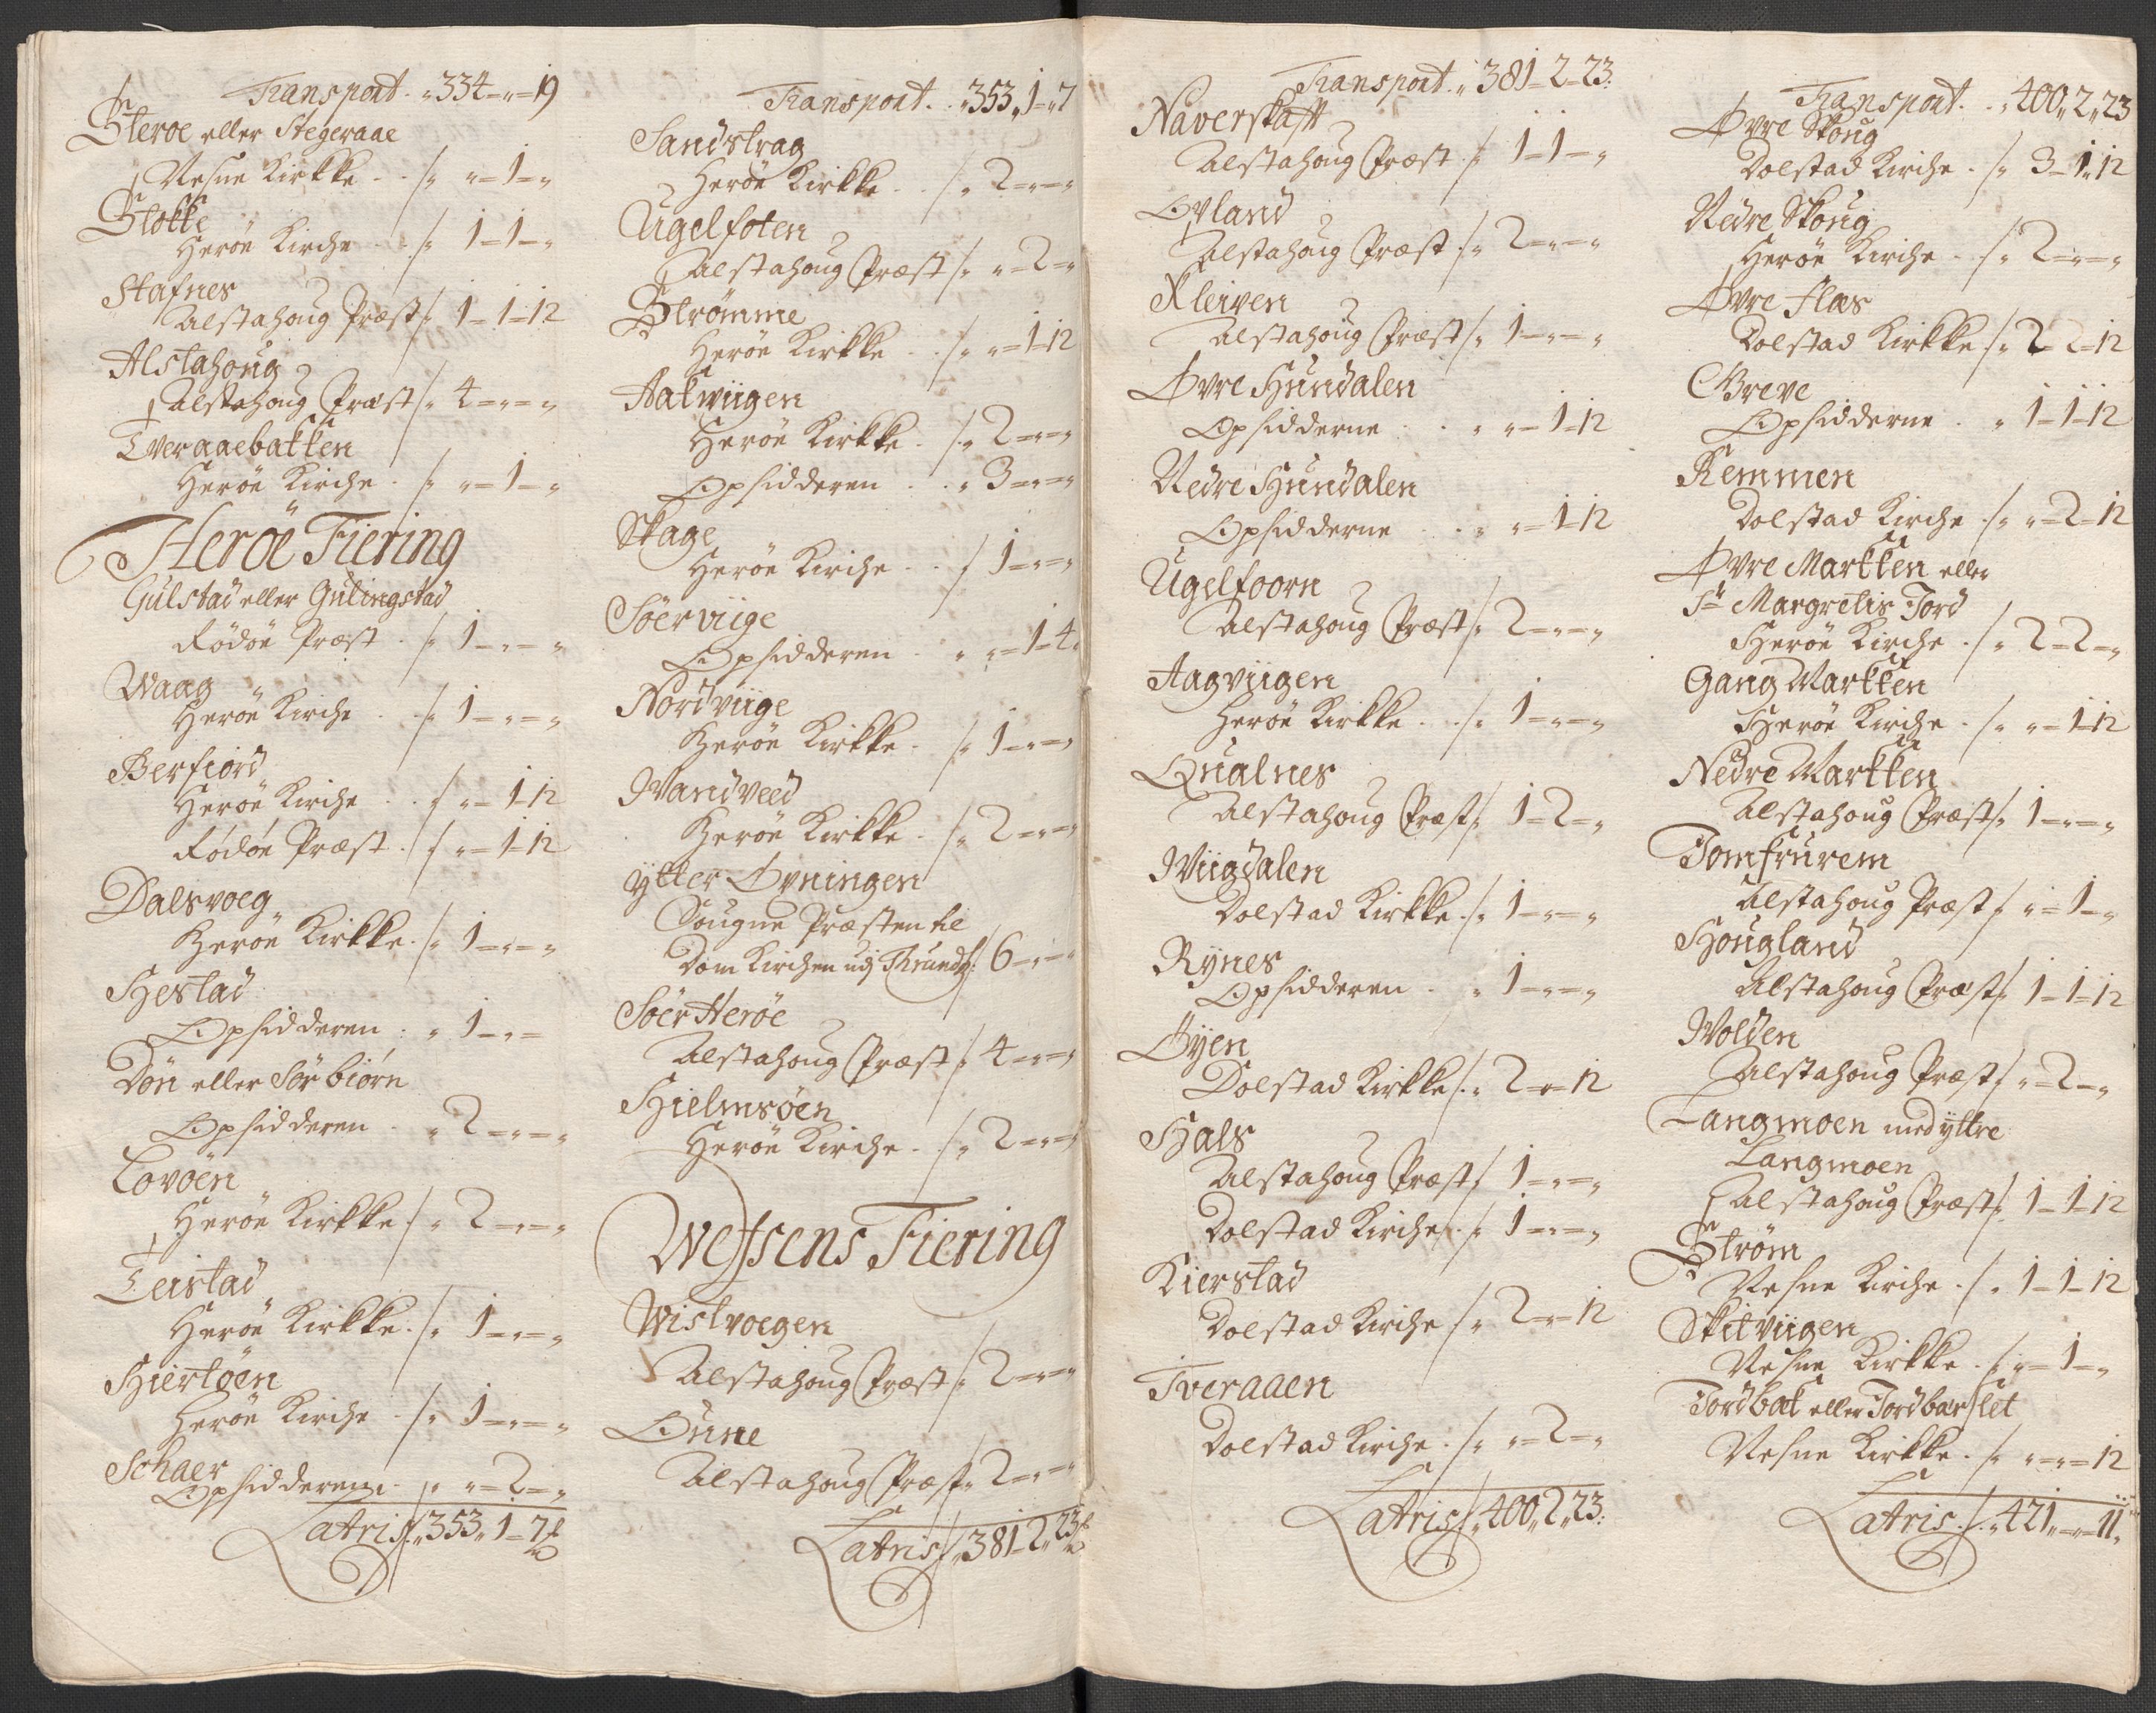 Transport. „ 334 – „ – 19
Steroe eller Stegeraae
Nesne Kirkke . . /. „ – 1 – „
Stokke
Herøe Kirche . . /. 1 – 1 – „
Stafnes
Alstahoug Præst /. 1 – 1 – 12
Alstahoug
Alstahoug Præst /. 4 – „ – „
Tveraaebakken
Herøe Kirche . /. „ – 1 – „
Herøe Fiering
Gulstad eller Gulingstad
Rødøe Præst . /. 1 – „ – „
Waag
Herøe Kirche . /. 1 – „ – „
Berfiord
Herøe Kirche . . /. „ – 1 – 12
Rødøe Præst . /. „ – 1 – 12
Dalsvoeg
Herøe Kirkke . /. 1 – „ – „
Hestad
Opsidderen . „ 1 – „ –
Døn eller Sør biørn
Opsidderen . „ 2 – „ – „
Lovøen
Herøe Kirkke /. „ 2 – „ – „
Teistad
Herøe Kirkke . /. 1 – „ – „
Hiertøen
Herøe Kirche . /. 1 – „ – „
Schaer
Opsidderen . „ „ – 2 – „
Latris /. 353 „ 1 – 7
Transport . . „ 353 „ 1 – 7
Sandstrag
Herøe Kirkke . . /. 2 – „ – „
Ugelfoten
Alstahoug Præst /. „ – 2 – „
Strømme
Herøe Kirkke . . /. „ – 1 – 12
Aakwiigen
Herøe Kirkke . /. 2 – „ – „
Opsidderen . . „ 3 – „ – „
Skage
Herøe Kirche . . /. 1 – „ – „
Søerviige
Opsidderen . „ „ – 1 – 4
Nordviige
Herøe Kirkke . /. 1 – „ – „
Wandveed
Herøe Kirkke . /. 2 – „ – „
ytter Øvningen
Sougne Præsten til
Dom Kirchen udj Thrundh: /. 6 – „ – „
Søer Herøe
Alstahoug Præst /. 4 – „ – „
Hielmsøen
Herøe Kirche . /. 2 – „ – „
Wefsens Fiering
Wistvoegen
Alstahoug Præst /. 2 – „ – „
Unne
Alstahoug Præst „ 2 – „ – „
Latris /. 381 – 2 „ 23
Transport . „ 381 – 2 – 23
Naverskaft
Alstahoug Præst . /. 1 – 1 – „
Ovland
Alstahoug Præst . /. 2 – „ – „
Kleiven
Alstahoug Præst /. 1 – „ – „
Øvre Hundalen
Opsidderne . . „ „ – 1 – 12
Nedre Hundalen
Opsidderne . . „ „ – 1 – 12
Ugelfoorn
Alstahoug Præst /. 2 – „ – „
Aagviigen
Herøe Kirkke . . /. 1 – „ – „
Qualnes
Alstahoug Præst /. 1 – 2 – „
Wiigdalen
Dolstad Kirkke . /. 1 – „ – „
Rynes
Opsidderen . „ 1 – „ – „
Øyen
Dolstad Kirkke /. „ 2 – „ – 12
Hals
Alstahoug Præst /. 1 – „ – „
Dolstad Kirche . /. 1 – „ – „
Kierstad
Dolstad Kirche /. 2 – „ – 12
Tveraaen
Dolstad Kirche . /. „ – 2 – „
Latris /. „ 400 „ 2 „ 23
Transport . . „ 400 „ 2 „ 23
Øvre Skoug
Dolstad Kirche . /. 3 – 1 – 12
Nedre Skoug
Herøe Kirche . /. 2 – „ – „
Øvre Flæs
Dolstad Kirkke /. 2 – 2 – 12
Greve
Opsidderne . „ 1 – 1 – 12
Remmen
Dolstad Kirche . /. „ – 2 – 12
Øvre Markken eller
Ste Margretis Jord
Herøe Kirche . /. 2 – 2 – „
Gang Markken
Herøe Kirche . /. „ – 1 – 12
Nedre Markken
Alstahoug Præst /. 1 – „ – „
Jomfrurem
Alstahoug Præst /. „ – 1 – „
Hougland
Alstahoug Præst /. 1 – 1 – 12
Wolden
Alstahoug Præst /. „ – 2 – „
Langmoen med yttre
Langmoen
Alstahoug Præst /. 1 – 1 – 12
Strøm
Nesne Kirche . /. „ 1 – 1 – 12
Skitviigen
Nesne Kirkke . /. „ – 1 – „
Jordbæk eller Jordbærslet
Nesne Kirkke . /. „ – „ – 12
Latris . /. „ 421 „ – „ – 11 „